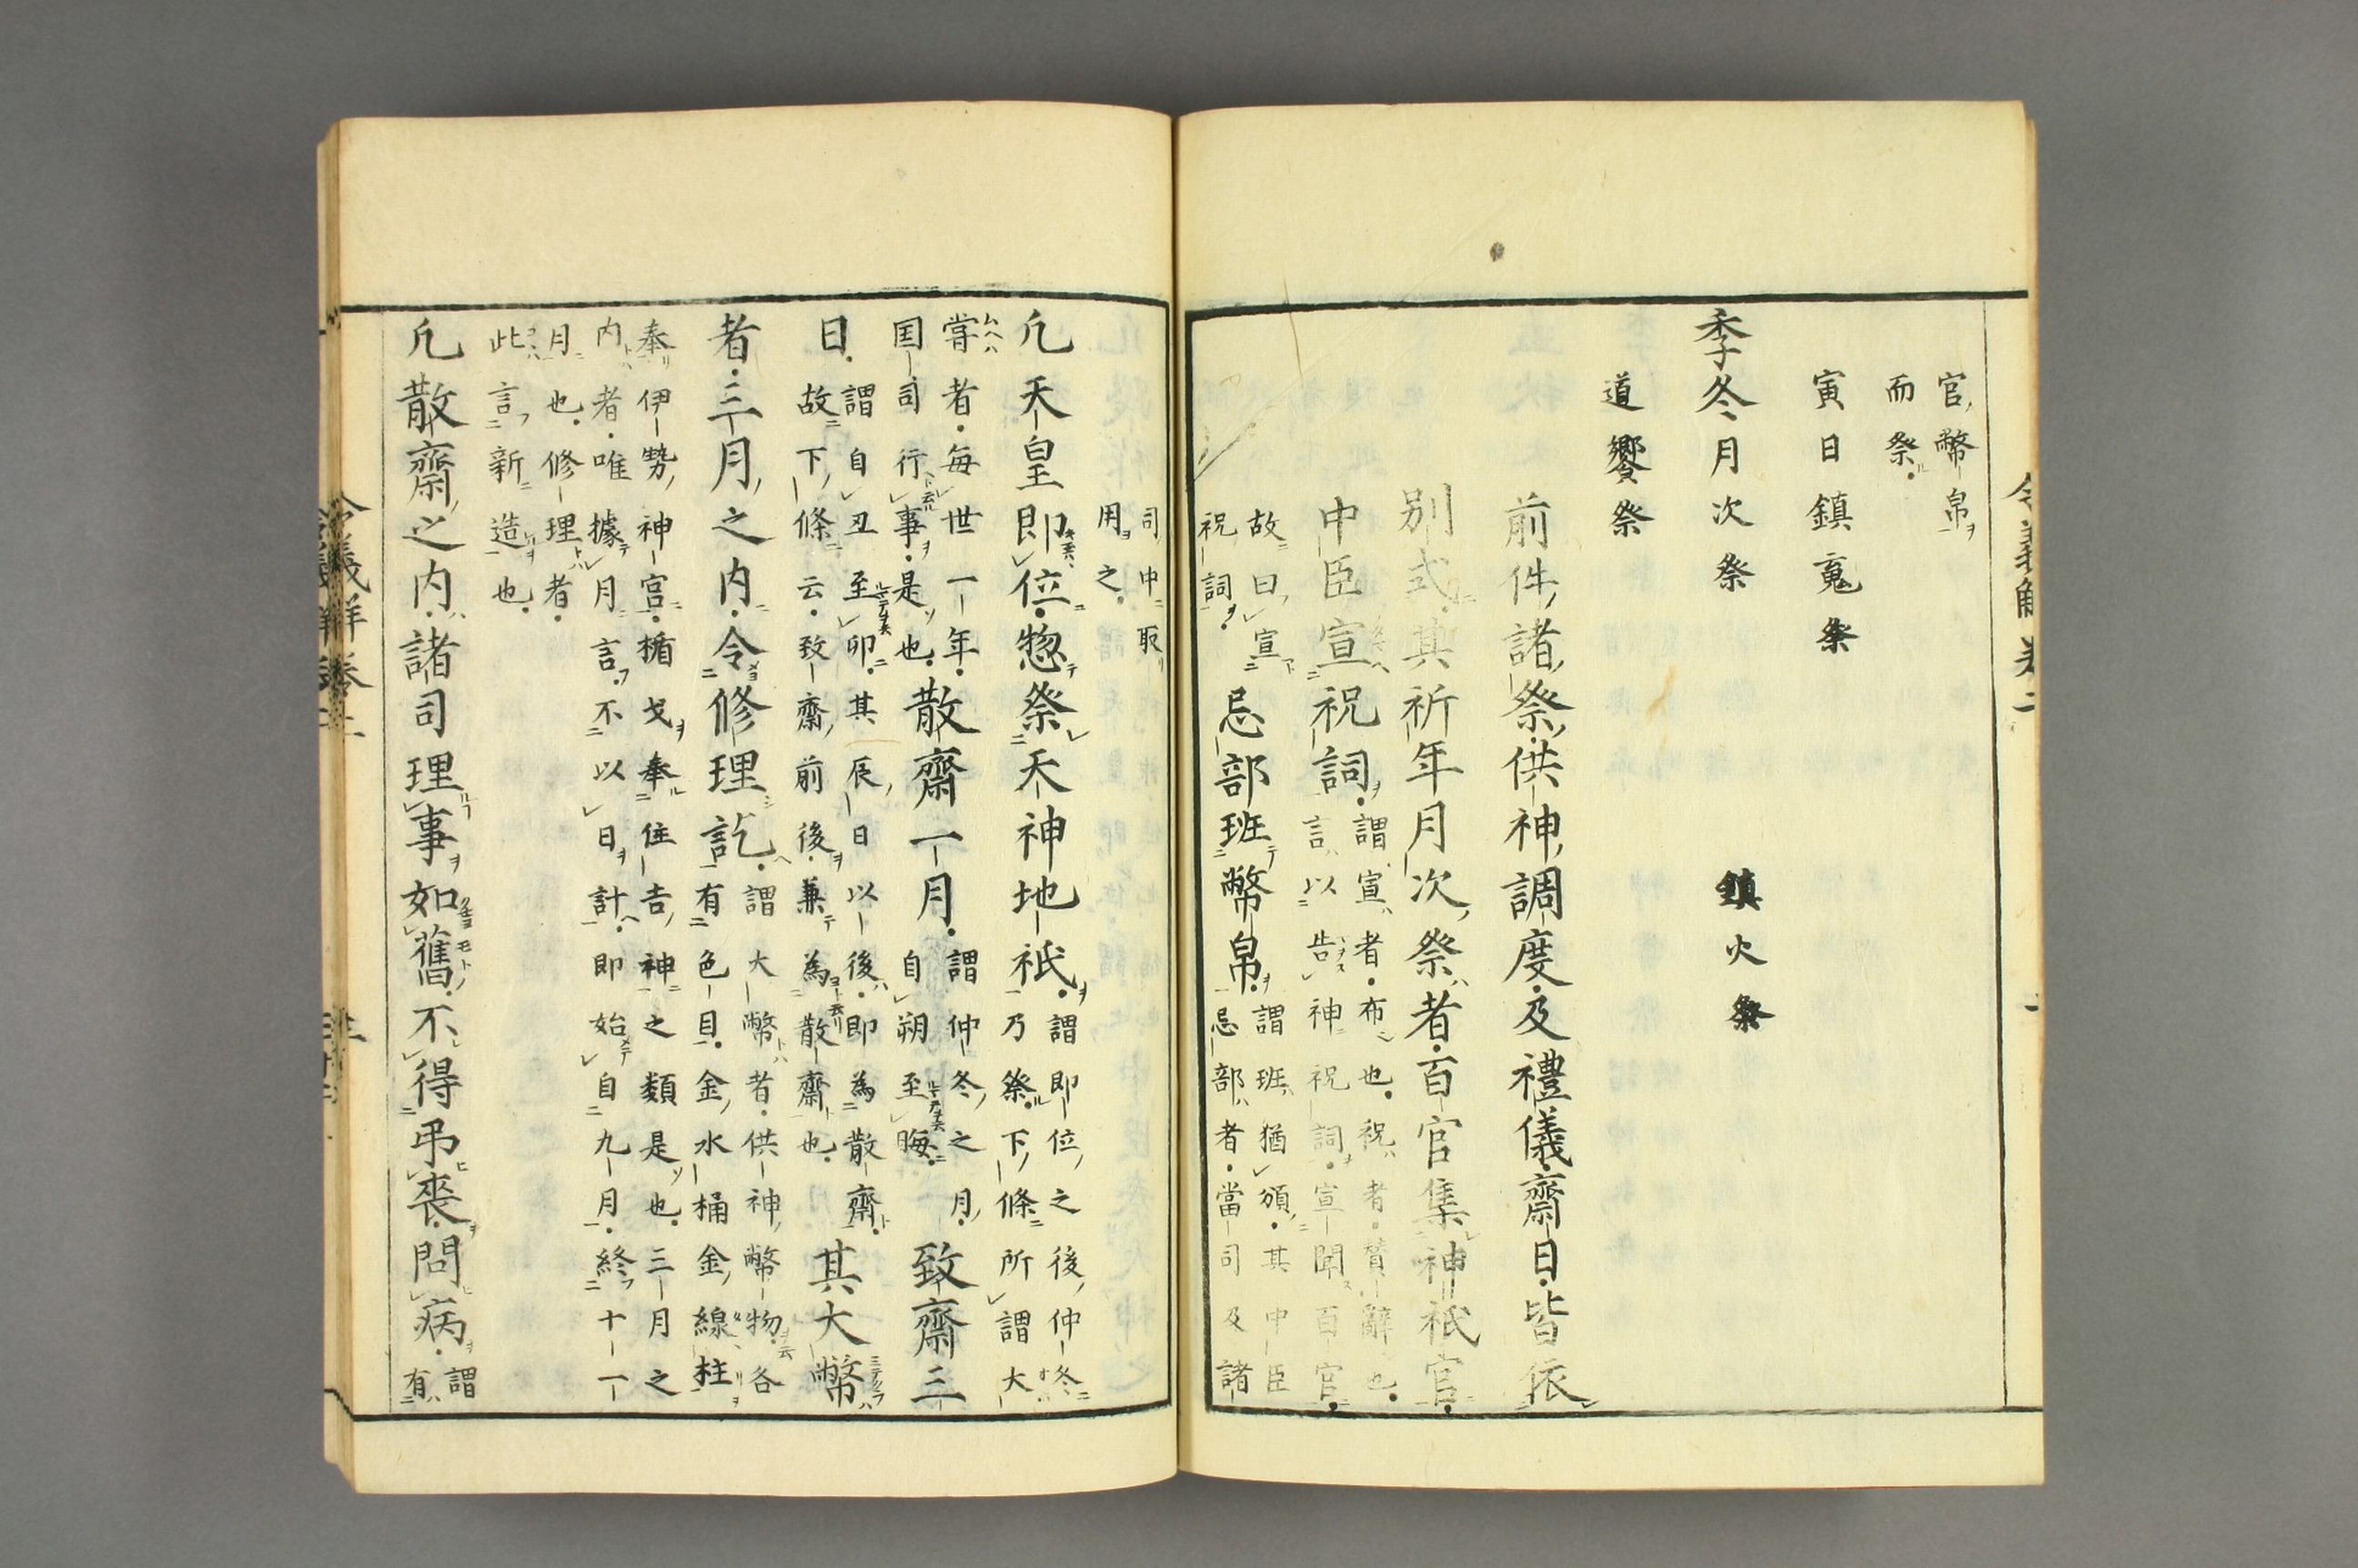 官幣帛
而祭
寅日鎮䰟祭
季冬月次祭 鎮火祭
道饗祭
前件諸祭供神調度及禮儀齋日皆依
別式其祈年月次祭者百官集神祇官
中臣宣祝詞謂宣者布也祝者賛辭也
言以告神祝詞宣聞百官
故曰宣
祝詞
忌部班幣帛謂班猶頒其中臣
忌部者當司及諸
司中取
用之
凢天皇即位惣祭天神地祇謂即位之後仲冬
乃祭下條所謂大
甞者每世一年
国司行事是也
散齋一月謂仲冬之月
自朔至晦
致齋三
日謂自丑至卯其辰日以後即為散齋
故下條云致齋前後兼為散齋也
其大幣
者三月之内令修理訖謂大幣者供神幣物各
有色目金水桶金線柱
奉伊勢神宮楯戈奉住吉神之類是也三月之
内者唯據月言不以日計即始自九月終十一
月也修理者
此言新造也
凢散齋之内諸司理事如舊不得弔喪問病謂
有